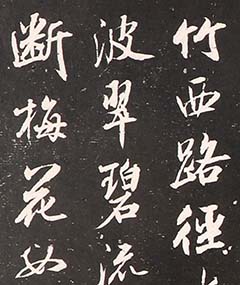 竹西路徑
波翠碧流
断梅花